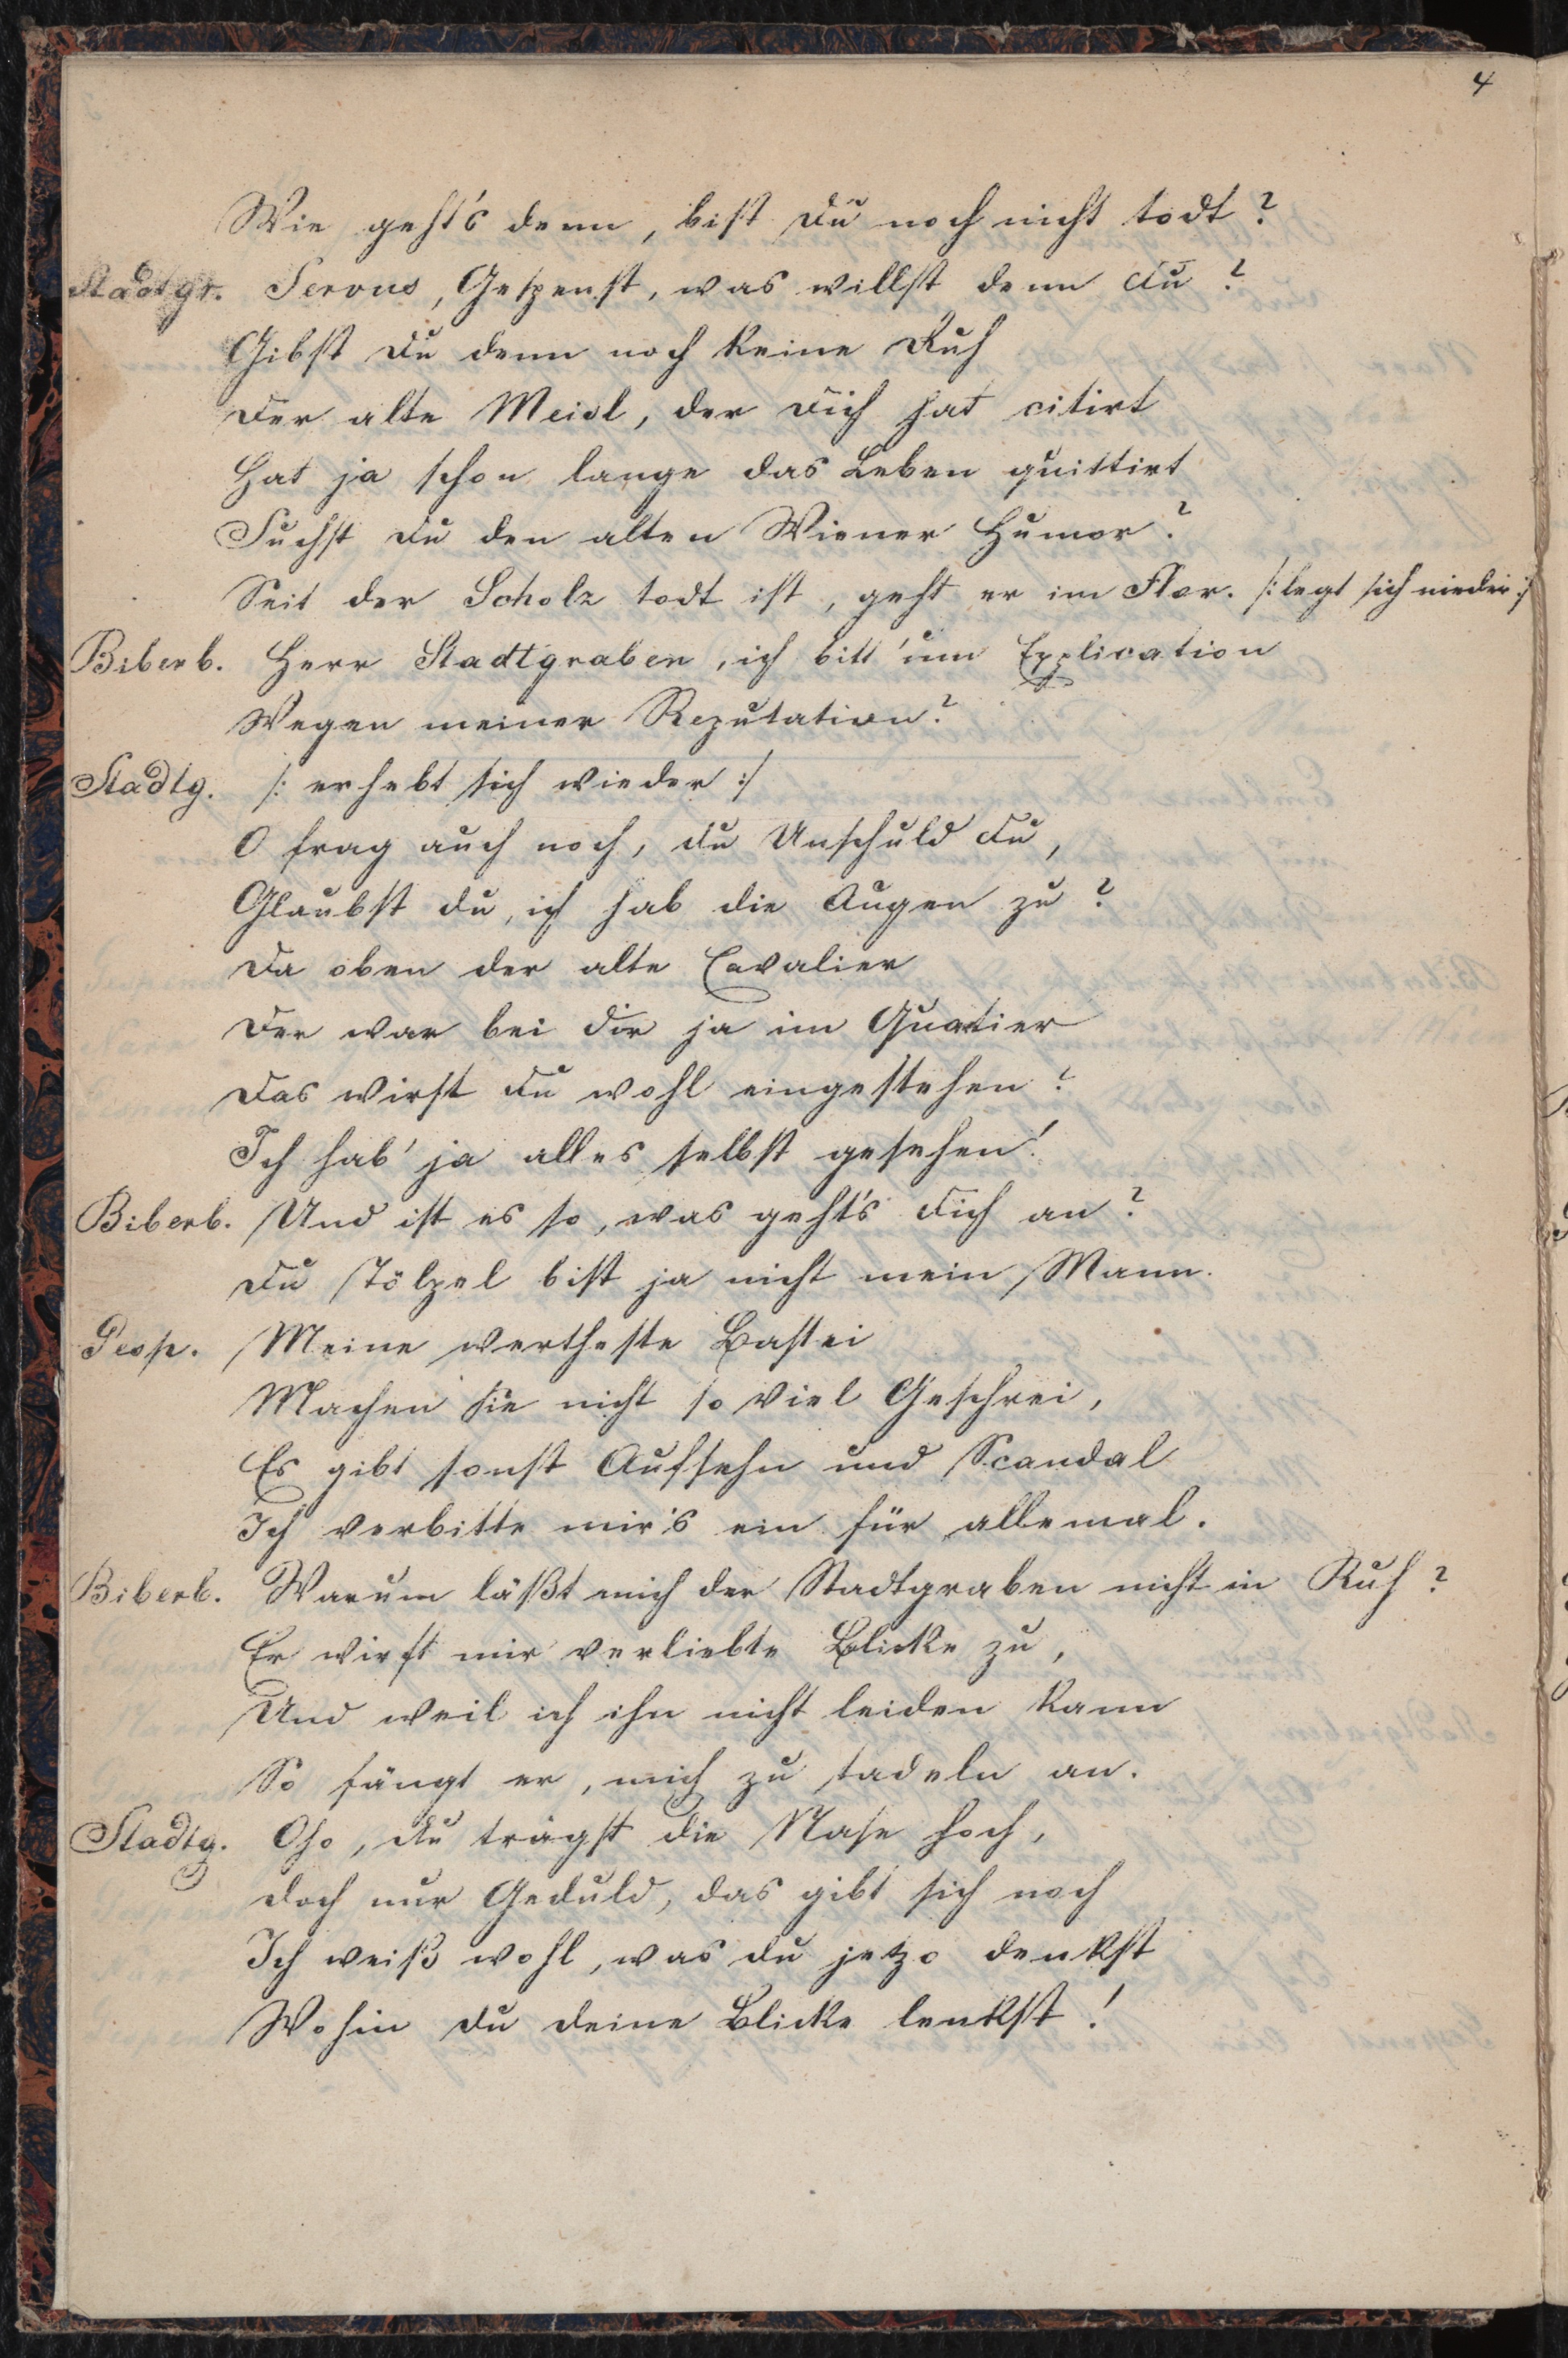 4
Wie geht's denn, bist Du noch nicht todt?
Stadtgr. Servus, Gespenst, was willst denn Du?
Gibst Du denn noch keine Ruh
Der alte Meisl, der Dich hat citirt
Hat ja schon lange das Leben quittirt
Suchst Du den alten Wiener Humor?
Seit der Scholz todt ist, geht er im Flor. /: legt sich nieder :/
Biberb. Herr Stadtgraben, ich bitt' um Explication
Wegen meiner Reputation?
Stadtg. /: erhebt sich wieder :/
O frag auch noch, du Unschuld Du,
Glaubst du, ich hab die Augen zu?
Da oben der alte Cavalier
Der war bei Dir ja im Quatier
Das wirst Du wohl eingestehen?
Ich hab' ja alles selbst gesehen!
Biberb. Und ist es so, was geht's Dich an?
Du Tölpel bist ja nicht mein Mann.
Gesp. Meine wertheste Bastei
Machen Sie nicht so viel Geschrei,
Es gibt sonst Aufsehn und Scandal
Ich verbitte mir's ein für allemal.
Biberb. Warum läßt mich der Stadtgraben nicht in Ruh?
Er wirft mir verliebte Blicke zu,
Und weil ich ihn nicht leiden kann
So fängt er, mich zu tadeln an.
Stadtg. Oho, du trägst die Nase hoch,
doch nur Geduld, das gibt sich noch
Ich weiß wohl, was du jetzo denkst
Wohin du deine Blicke lenkst!